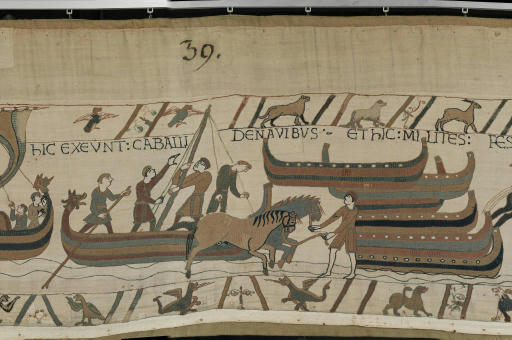 39.
HIC EXEVNT: CABALLI DENAVIBVS:- ETHIC: MILITES: FES